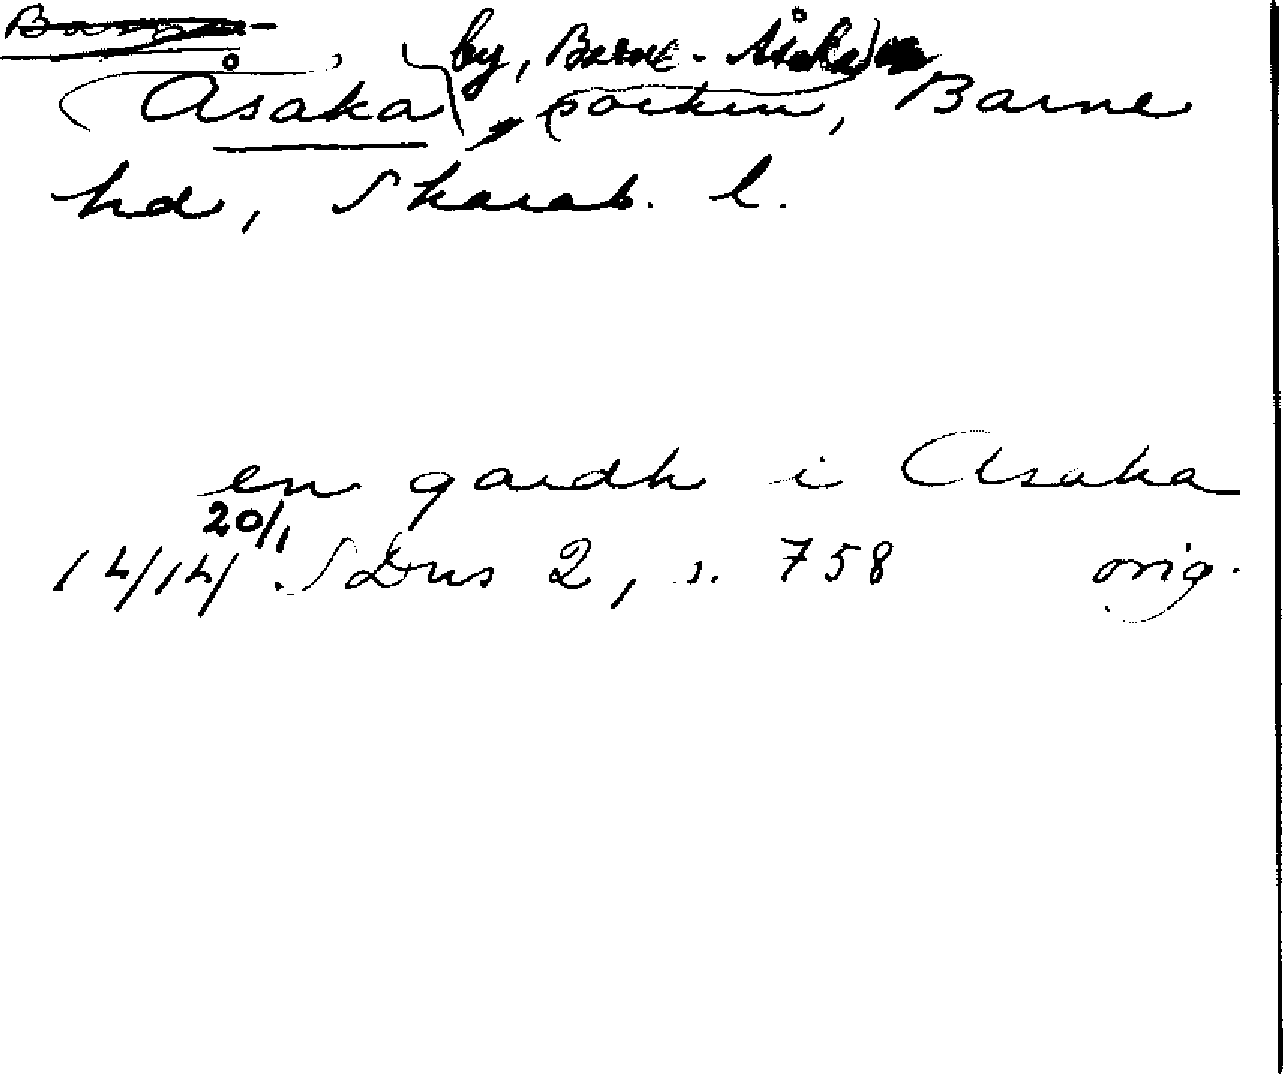 by, Barne-Åsaka
Åsaka, socken, Barne
hd, Skarab. l.
en gardh i Asaka
20/1
14/14 SDns 2, s. 758 orig.